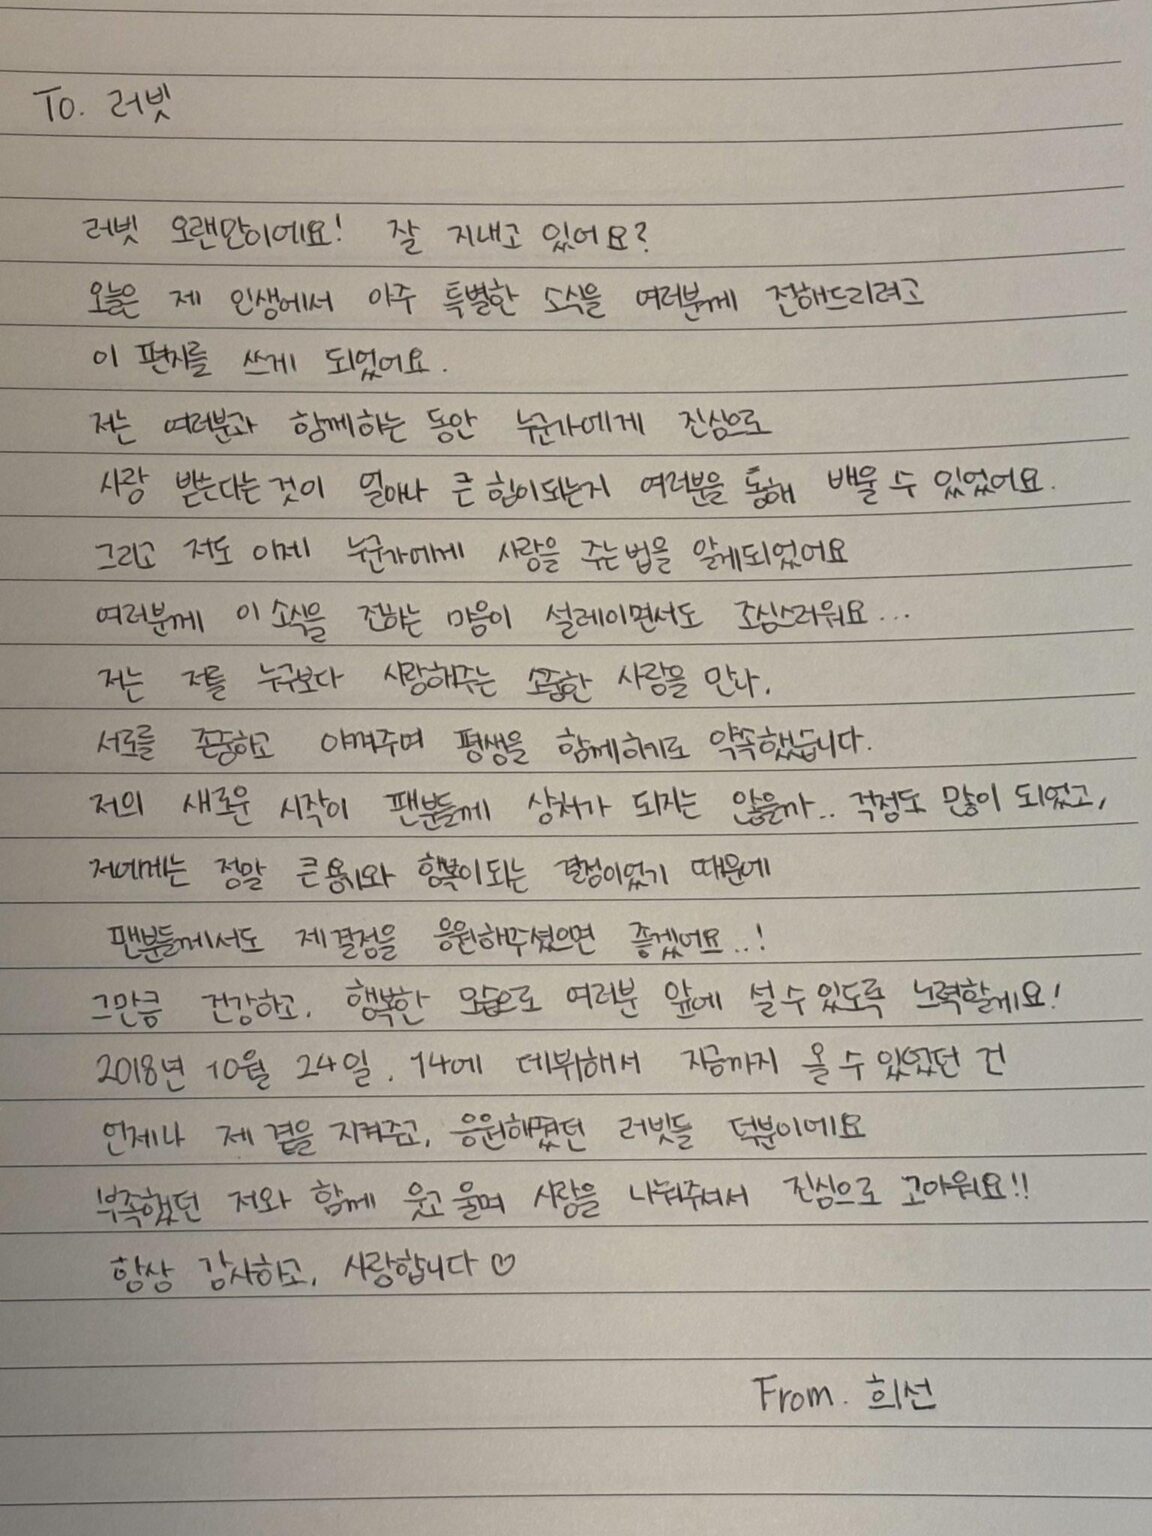 To. 러빗
러빗 오랜만이에요! 잘 지내고 있어요?
오늘은 제 인생에서 아주 특별한 소식을 여러분께 전해드리려고
이 편지를 쓰게 되었어요.
저는 여러분과 함께하는 동안 누군가에게 진심으로
사랑 받는다는 것이 얼마나 큰 힘이되는지 여러분을 통해 배울 수 있었어요.
그리고 저도 이제 누군가에게 사랑을 주는법을 알게되었어요
여러분께 이 소식을 전하는 마음이 설레이면서도 조심스러워요...
저는 저를 누구보다 사랑해주는 소중한 사람을 만나,
서로를 존중하고 아껴주며 평생을 함께하기로 약속했습니다.
저의 새로운 시작이 팬분들께 상처가 되지는 않을까.. 걱정도 많이 되었고,
저에게는 정말 큰용기와 행복이되는 결정이었기 때문에
팬분들께서도 제결정을 응원해주셨으면 좋겠어요..!
그만큼 건강하고, 행복한 모습으로 여러분 앞에 설수있도록 노력할게요!
2018년 10월 24일, 14에 데뷔해서 지금까지 올 수 있었던 건
언제나 제 곁을 지켜주고, 응원해줬던 러빗들 덕분이에요
부족했던 저와 함께 웃고 울며 사랑을 나눠주셔서 진심으로 고마워요!!
항상 감사하고, 사랑합니다♡
From. 희선